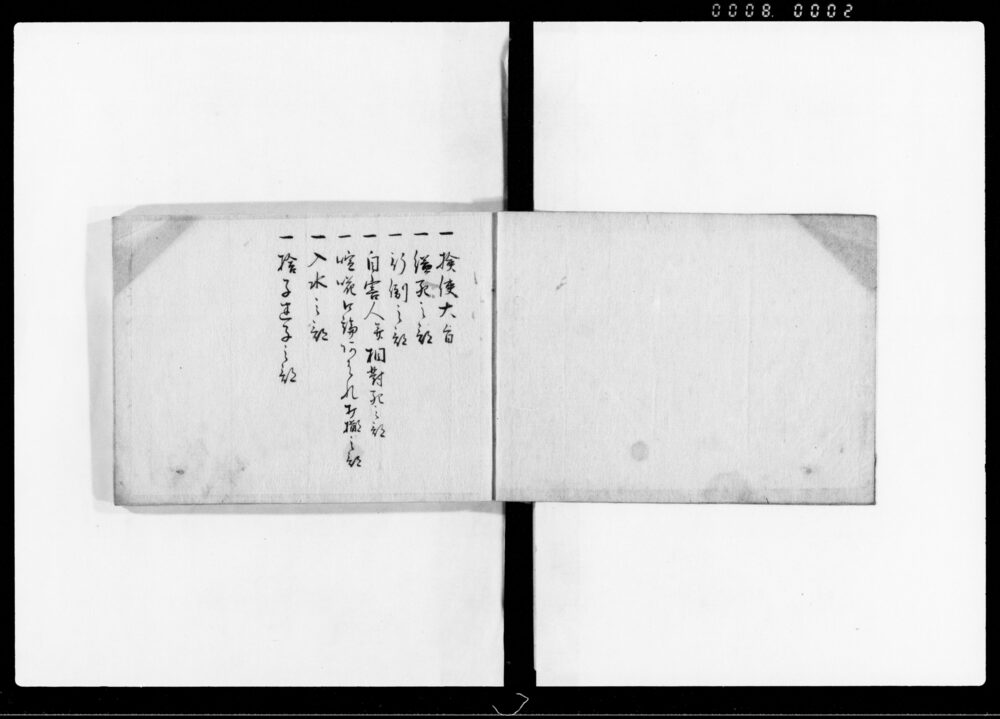 0008 0002
一検使大旨
一縊死之部
一行倒之部
一自害人并相對死之部
一喧嘩口論
一入水之部
一捨子迷子之部